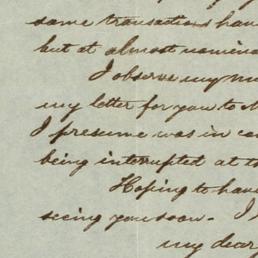 same transactions have
but at almost nomina
I observe my m
my letter for you to
I presume was in co
being interrupted at t
Hoping to have
seeing you soon - I
my dear